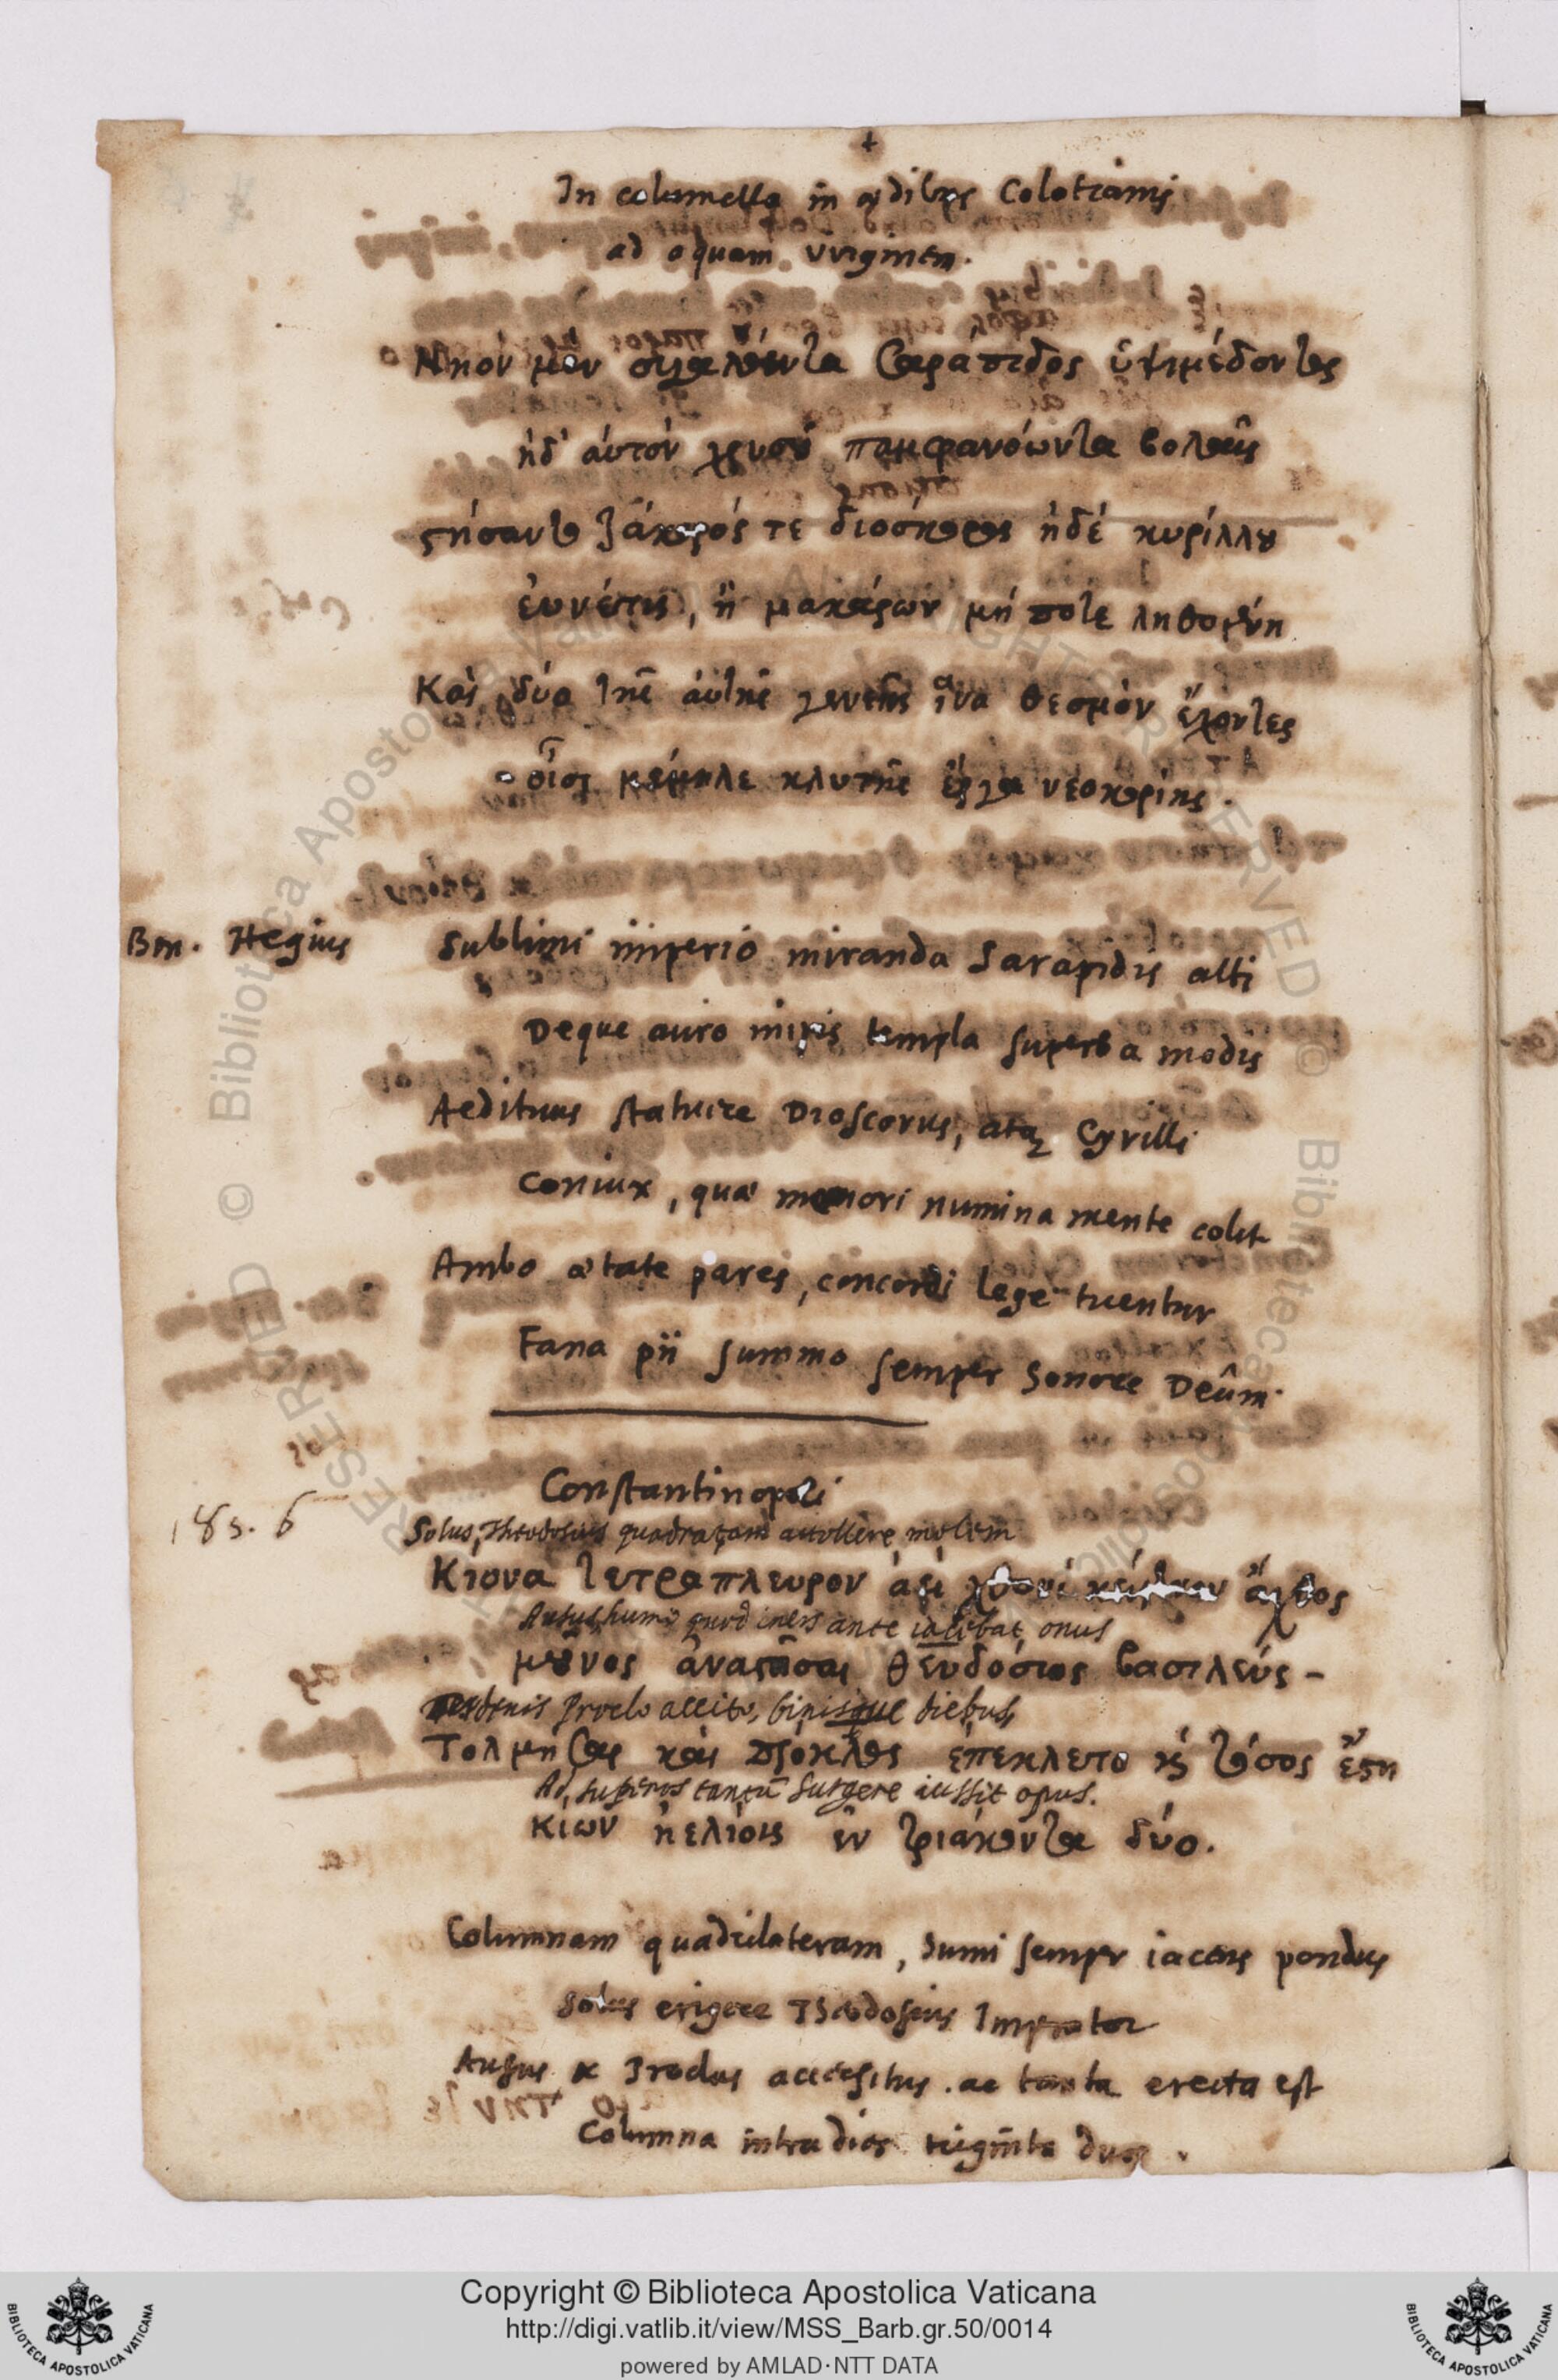 +
In columella in ædibus Colotianis
ad aquam virginem.
Νηὸν μὲν σιγαλόεντα Σαράπιδος ὑψιμέδοντος
ἠδ' αὐτὸν χρυσοῦ παμφανόωντα βολαῖς
στήσαντο ζάκορός τε διόσκορος ἠδέ κυρίλλου
εὐνέτις, ἣ μακάρων μή ποτε ληθομένη
Καὶ δύο τῆς αὐτῆς γενεῆς ἕνα θεσμὸν ἔχοντες
οἷσι μέμηλε κλυτῆς ἔργα νεοκορίης.
Ben. Hegius
Sublimi imperio miranda Sarapidis alti
Deque auro miris templa superba modis
Aedituus statuere Dioscorus, atq Cyrilli
Coniux, quæ memori numina mente colit
Ambo ætate pares, concordi lege tuentur
Fana pii summo semper honore Deûm.
Constantinopoli
183. 6
Solus Theodosius quadratam attollere molem
Κιονα τετραπλευρον ἀεὶ χθονὶ κείμενον ἄχθος
Ausus, humi quod iners ante iacebat, onus
μοῦνος ἀναστῆσαι θευδόσιος βασιλεύς -
terdenis Proclo accito, binisque diebus
Τολμησας καὶ πρόκλος ἐπεκλετο κὶ τόσος ἔστη
Ad superos tantū surgere iussit opus.
κιων ἠελίοις ἐν τριάκοντα δύο.
Columnam quadrilateram, humi semper iacens pondus
Solus erigere Theodosius Imperator
Ausus & Proclus accersitus. ac tanta erecta est
Columna intra dies trigīnta duos.
Copyright © Biblioteca Apostolica Vaticana
http://digi.vatlib.it/view/MSS_Barb.gr.50/0014
powered by AMLAD·NTT DATA